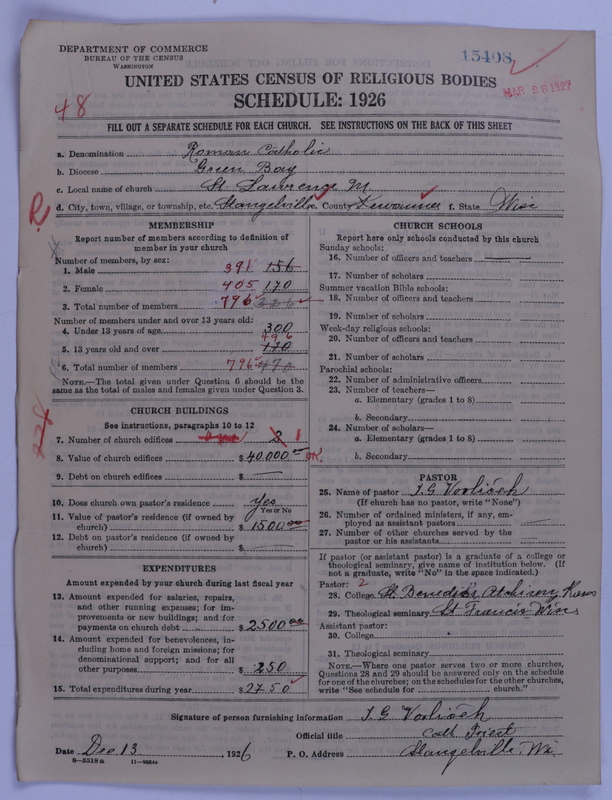 DEPARTMENT OF COMMERCE
BUREAU OF THE CENSUS
WASHINGTON
15408
MAR 28 1927
UNITED STATES CENSUS OF RELIGIOUS BODIES
SCHEDULE: 1926
48
FILL OUT A SEPARATE SCHEDULE FOR EACH CHURCH. SEE INSTRUCTIONS ON THE BACK OF THIS SHEET
a. Denomination Roman Catholic
b. Diocese Green Bay
c. Local name of church St Lawrence M
d. City, town, village, or township, etc. Stangelville e. County Kewaunee f. State Wisc
R
MEMBERSHIP
Report number of members according to definition of
member in your church
Number of members, by sex:
1. Male 391 156
2. Female 405 170
3. Total number of members 796 326
Number of members under and over 13 years old:
4. Under 13 years of age 300
5. 13 years old and over 496 170
6. Total number of members 796 470
NOTE.—The total given under Question 6 should be the
same as the total of males and females given under Question 3.
CHURCH BUILDINGS
See instructions, paragraphs 10 to 12
7. Number of church edifices 2 1
8. Value of church edifices $ 40.000 00 OK.
9. Debt on church edifices $ —
10. Does church own pastor's residence? Yes
Yes or No
11. Value of pastor's residence (if owned by
church) $ 1500 00
12. Debt on pastor's residence (if owned by
church) $ —
EXPENDITURES
Amount expended by your church during last fiscal year
13. Amount expended for salaries, repairs,
and other running expenses; for im-
provements or new buildings; and for
payments on church debt $ 2500 00
14. Amount expended for benevolences, in-
cluding home and foreign missions; for
denominational support; and for all
other purposes $ 250
15. Total expenditures during year $ 2750
CHURCH SCHOOLS
Report here only schools conducted by this church
Sunday schools:
16. Number of officers and teachers —
17. Number of scholars
Summer vacation Bible schools:
18. Number of officers and teachers
19. Number of scholars
Week-day religious schools:
20. Number of officers and teachers
21. Number of scholars
Parochial schools:
22. Number of administrative officers
23. Number of teachers—
a. Elementary (grades 1 to 8)
b. Secondary
24. Number of scholars—
a. Elementary (grades 1 to 8)
b. Secondary
PASTOR
25. Name of pastor
(If church has no pastor, write "None")
26. Number of ordained ministers, if any, em-
ployed as assistant pastors —
27. Number of other churches served by the
pastor or his assistants
If pastor (or assistant pastor) is a graduate of a college or
theological seminary, give name of institution below. (If
not a graduate, write "No" in the space indicated.)
Pastor: 2
28. College St. Benedicts Atchison Kans
29. Theological seminary St Francis Wis
Assistant pastor:
30. College
31. Theological seminary
NOTE.—Where one pastor serves two or more churches,
Questions 28 and 29 should be answered only on the schedule
for one of the churches; on the schedules for the other churches,
write "See schedule for church."
Signature of person furnishing information
Official title Cath Priest
Date Dec 13, 1926 P. O. Address Stangelville, Wis
8—5518 a 11—9054a